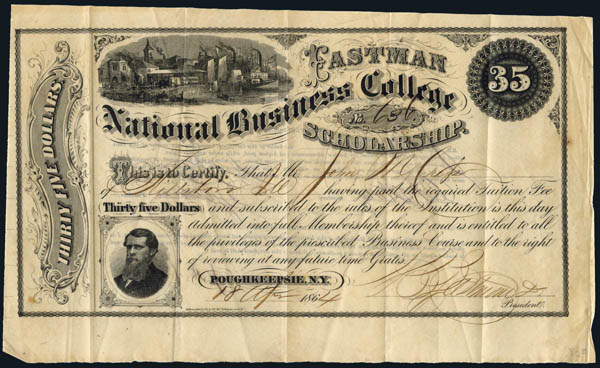 THIRTY FIVE DOLLARS
EASTMAN
35
National Business College
No. 636.
SCHOLARSHIP.
This is to Certify, That Mr John
of Hillsboro Ill having paid the required Tuition Fee
Thirty five Dollars and subscribed to the rules of the Institution is this day
admitted into full Membership thereof and is entitled to all
the privileges of the prescribed Business Course and to the right
of reviewing at any future time Gratis.
POUGHKEEPSIE, N.Y.
18 1864
President.